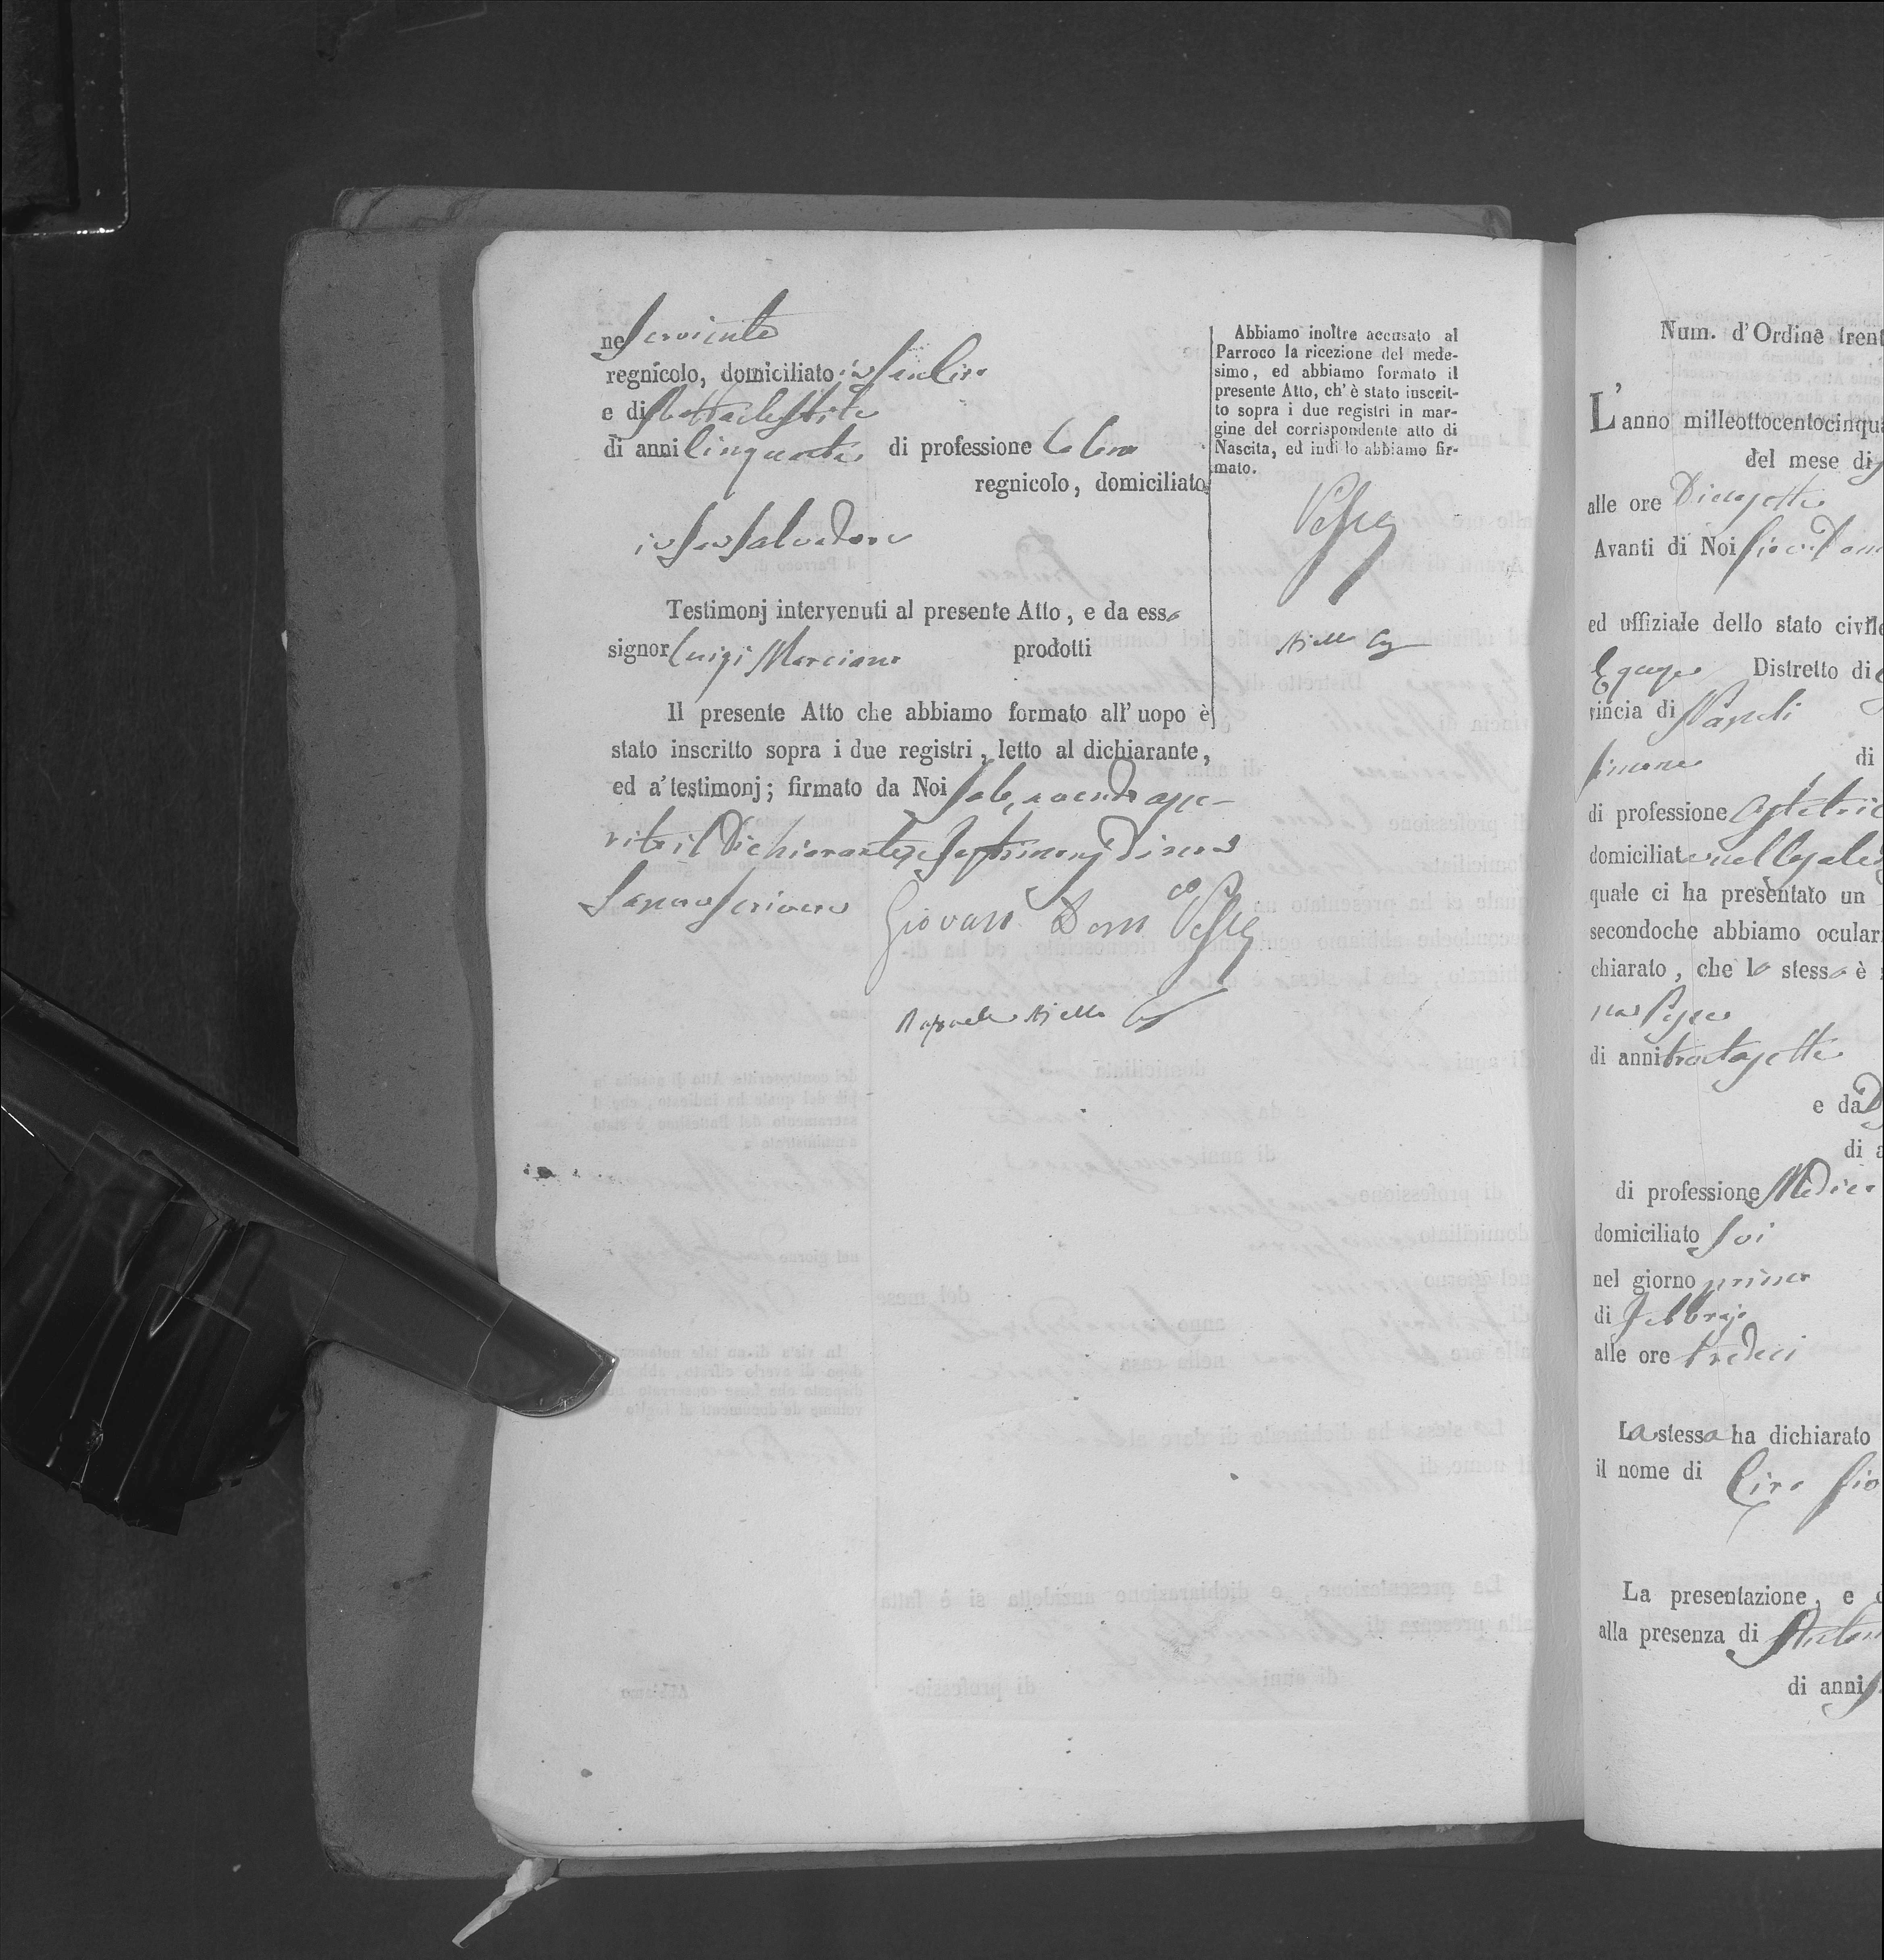 ne Serviente
regnicolo, domiciliato in
e di
di anni Cinquanta di professione Colono
regnicolo, domiciliato
in San Salvadore
Testimonj intervenuti al presente Atto, e da esso
signor Luigi Marciano prodotti
Il presente Atto che abbiamo formato all' uopo è
stato inscritto sopra i due registri, letto al dichiarante,
ed a' testimonj; firmato da Noi avendo asse-
rito il Dichiarante, e Testimonj Di non
Saper scrivere Giovan Dom.co
Raffaele Aiello
Abbiamo inoltre accusato al
Parroco la ricezione del mede-
simo, ed abbiamo formato il
presente Atto, ch' è stato inscrit-
to sopra i due registri in mar-
gine del corrispondente atto di
Nascita, ed indi lo abbiamo fir-
mato.
Aiello
Num. d' Ordine trent
L'anno milleottocentocinqua
del mese di
alle ore Diciassette
Avanti di Noi Giov. Dom
ed uffiziale dello stato civile
Equense Distretto di
vincia di Napoli
di
di professione Ostetric
domiciliata
quale ci ha presentato un
secondoche abbiamo ocular
chiarato, che lo stesso è
di anni trentasette
e da
di a
di professione Medico
domiciliato ivi
nel giorno primo
di Febbrajo
alle ore tredici
La stessa ha dichiarato
il nome di Ciro Gio
La presentazione, e d
alla presenza di Anton
di anni